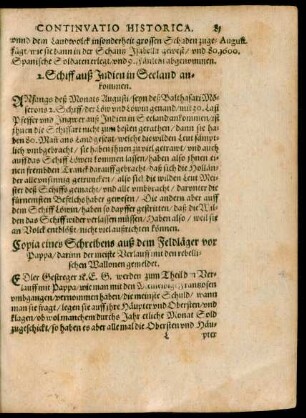 CONTINVATIO HISTORICA. 81
vnnd dem Landtvolck insonderheit grossen Schaden zuge- Augusti.
fügt, wie sie dann in der Schantz Isabella gewest, vnd 80.
Spanische Soldaten erlegt, vnd
abgenommen.
2. Schiff auß Indien in Seeland an-
kommen.
ANfangs deß Monats Augusti, seyn deß Balthasari Mo-
2. Schiff der Löw vnd Löwin genand, mit 90. Last
Pfeffer vnd Ingwer auß Indien in Seelandt ankommen, ist
ihnen die Schiffart nicht zum besten gerathen, dann sie ha-
ben 80. Mañ ans Land gesetzt, welche die wilden Leut sämpt-
lich vmbgebracht, sie haben ihnen zu viel getrawt, vnd auch
auff das Schiff Löwen kommen lassen, haben also ihnen ei-
nen frembden Tranck darauff gebracht, daß sich die Hollän-
der alle vnsinnig getruncken, also seyn die wilden Leut Mei-
ster deß Schiffs gemacht, vnd alle vmbbracht, darunter die
fürnembsten Befelchshaber gewesen, Die andern aber auff
dem Schiff Löwin, haben so dapffer gestritten, daß die Wil-
den das Schiff wider verlassen müssen, Haben also, weil sie
an Volck entblößt, nicht viel außrichten können.
Copia eines Schreibens auß dem Feldläger vor
Pappa, darinn der meiste Verlauff mit den rebelli-
schen Wallonen gemeldet.
EDler Gestrenger &c. E. G. werden zum Theil den Ver-
lauff mit Pappa, wie man mit den Frantzosen
vmbgangen, vernommen haben, die meinste Schuld, wann
man sie fragt, legen sie auff ihre Häupter vnd Obersten, vnd
klagen, ob wol man ihnen durchs Jahr etliche Monat Sold
zugeschickt, so haben es aber alle mal die Obersten vnd Häu-
L pter